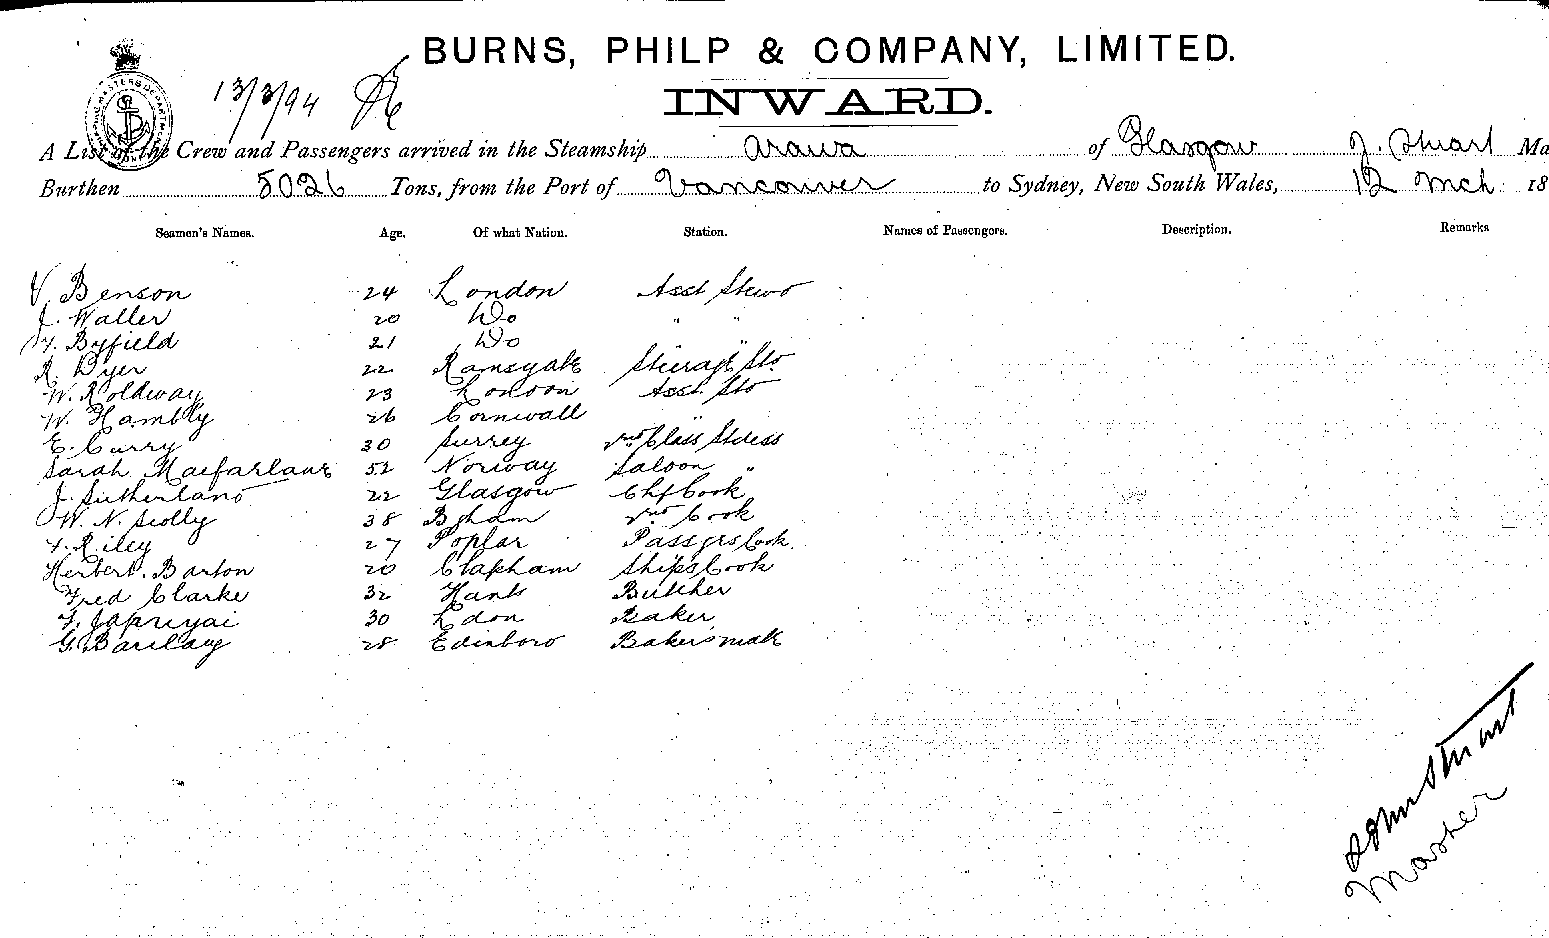 BURNS, PHILP & COMPANY, LIMITED.
13/3/94
INWARD.
A List of the Crew and Passengers arrived in the Steamship Arawa of Glasgow J. Stuart Ma
Burthen 5026 Tons, from the Port of Vancouver to Sydney, New South Wales, 12 Mch 18
Seamen's Names. Age. Of what Nation. Station. Names of Passengers. Description. Remarks
V. Benson 24 London Asst Stewd
J. Waller 20 Do " "
Byfield 21 Do "
R. Dyer 22 Ramsgate Steerage Std.
W. Roldway 23 London Asst. Std
W. Hambly 26 Cornwall "
E. Curry 30 Surrey 2nd Class Stress
Sarah Macfarlane 52 Norway Saloon "
J. Sutherland 22 Glasgow Chf Cook
W. N. 38 Bgham 2nd Cook
Riley 27 Poplar Passgrs Cook
Herbert. Barton 20 Clapham Ships Cook
Fred Clarke 32 Hants Butcher
30 Ldon Baker
G. Barclay 28 Edinboro Bakers mate
John Stuart
Master